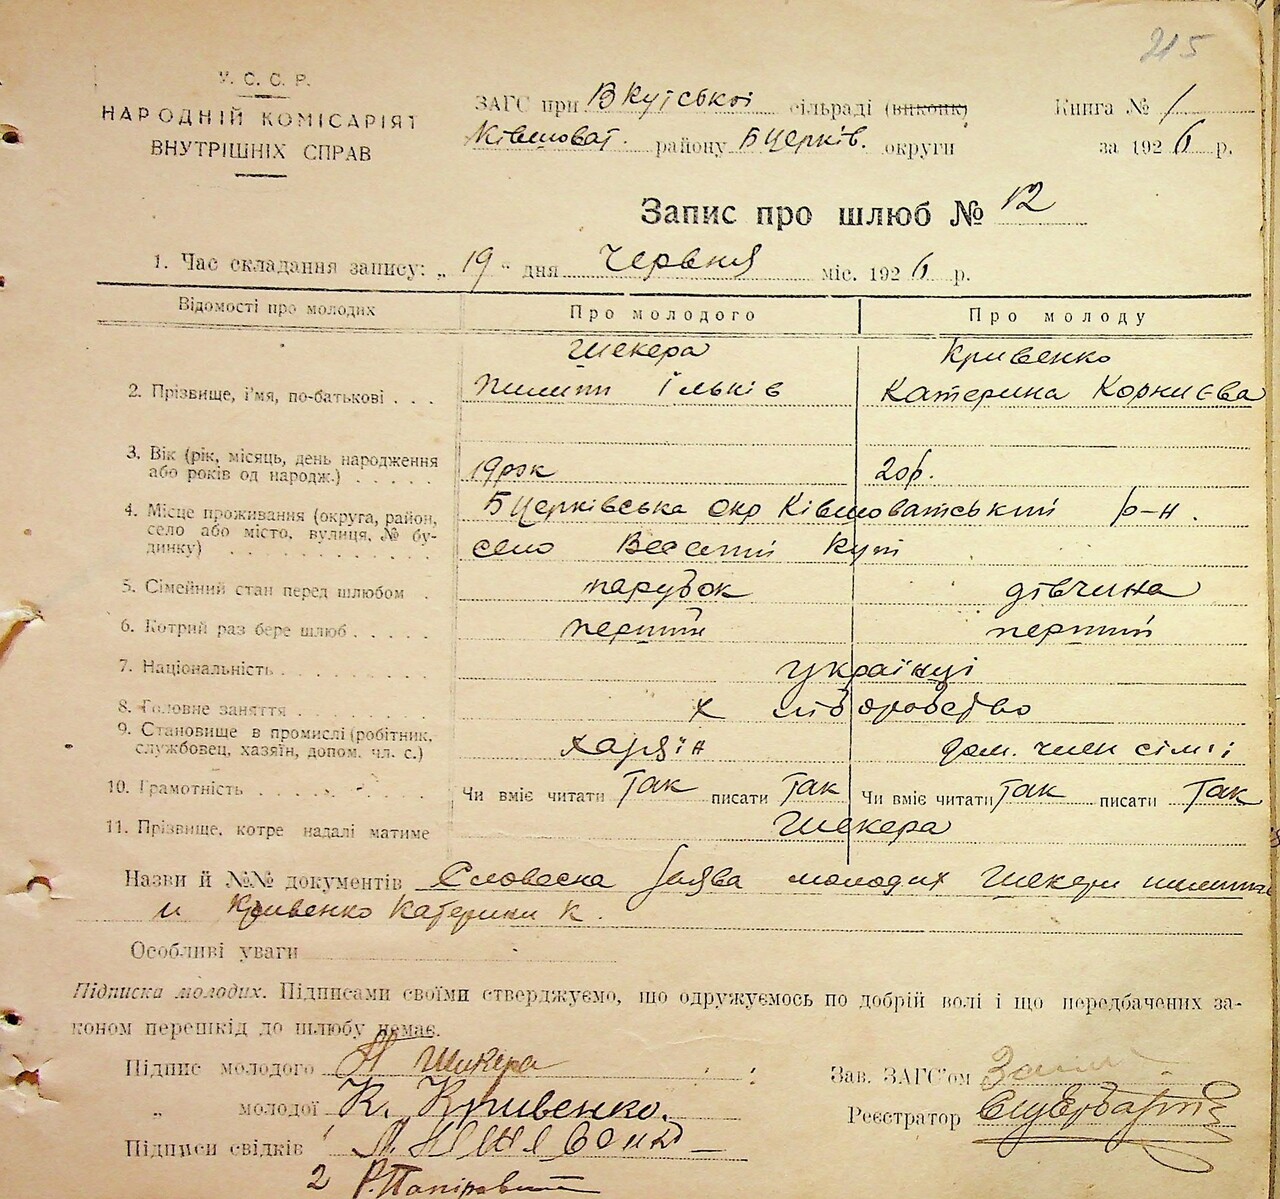 215
У. С. С. Р.
НАРОДНІЙ КОМІСАРІЯТ
ВНУТРІШНІХ СПРАВ
ЗАГС при Вкутської сільраді (виконк)
Ківшоват. району Бцерків. округи
Книга № 1
за 1926 р.
Запис про шлюб № 12
1. Час складання запису: „ 19 " дня Червня міс. 1926 р.
Відомості про молодих Про молодого Про молоду
Шекера Кривенко
2. Прізвище, ї'мя, по-батькові . . . Пилип Ільків Катерина Корниєва
3. Вік (рік, місяць, день народження
або років од народж.) . . . . . 19 рок 20 р.
4. Місце проживання (округа, район,
село або місто, вулиця, № бу-
динку) . . . . . . . . . .
Бцерківська окр Ківшоватський р-н.
село Веселий Кут
5. Сімейний стан перед шлюбом . парубок дівчина
6. Котрий раз бере шлюб . . . . . перший перший
7. Національність . . . . . . . . українці
8. Головне заняття . . . . . . . хліборобство
9. Становище в промислі (робітник,
службовец, хазяїн, допом. чл. с.) хазяїн дом. член сімї
10. Грамотність . . . . . . . Чи вміє читати так писати так Чи вміє читати так писати так
11. Прізвище, котре надалі матиме Шекера
Назви й №№ документів Словесна заява молодих Шекери Пилипа
и Кривенко Катерини К.
Особливі уваги
Підписка молодих. Підписами своїми стверджуємо, що одружуємось по добрій волі і що передбачених за-
коном перешкід до шлюбу немає.
Підпис молодого П Шикера
„ молодої К. Кривенко.
Підписи свідків
2
Зав. ЗАГС'ом
Реєстратор